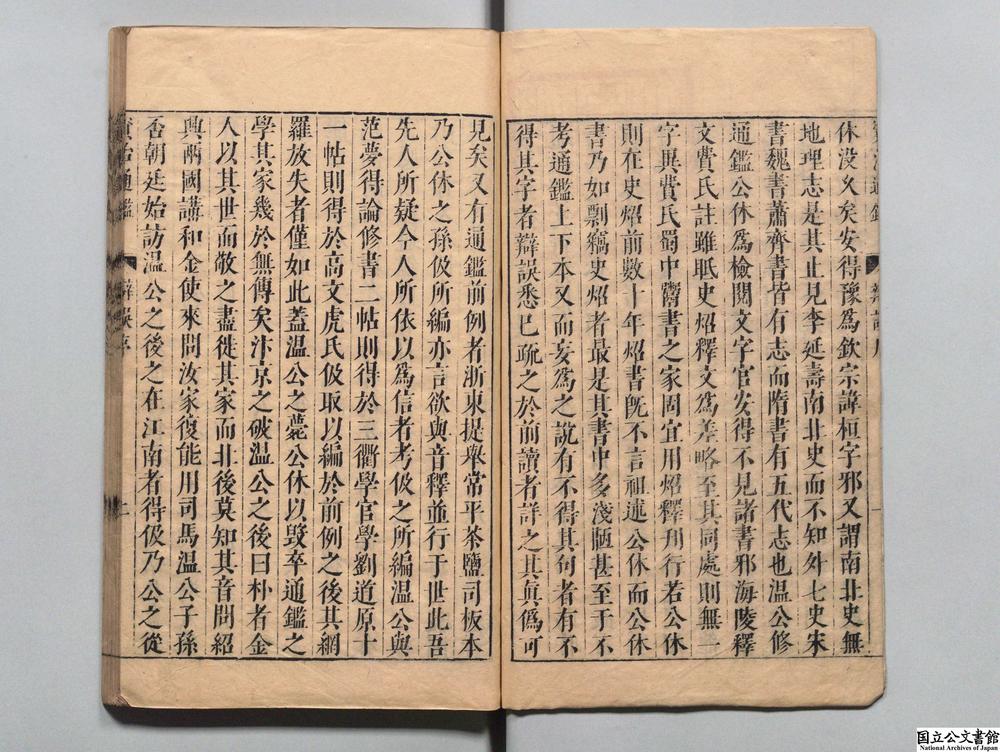 休没久矣安得豫為欽宗諱桓字邪又謂南北史無
地理志是其止見李延壽南北史而不知外七史宋
書魏書蕭齊書皆有志而隋書有五代志也温公修
通鑑公休為檢閱文字官安得不見諸書邪海陵釋
文費氏註雖視史炤釋文為差略至其同處則無一
字異費氏蜀中鬻書之家固宜用炤釋刊行若公休
則在史炤前數十年炤書既不言祖述公休而公休
書乃如剽竊史炤者最是其書中多淺陋甚至于不
考通鑑上下本文而妄為之説有不得其句者有不
得其字者辯誤悉已疏之於前讀者詳之其真偽可
見矣又有通鑑前例者浙東提舉常平茶鹽司板本
乃公休之孫伋所編亦言欲與音釋並行于世此吾
先人所疑今人所依以為信者考伋之所編温公與
范夢得論修書二帖則得於三衢學官學劉道原十
一帖則得於高文虎氏伋取以編於前例之後其網
羅放失者僅如此蓋温公之薨公休以毀卒通鑑之
學其家幾於無傳矣汴京之破温公之後曰朴者金
人以其世而敬之盡徙其家而北後莫知其音問紹
興兩國講和金使來問汝家復能用司馬温公子孫
否朝廷始訪温公之後之在江南者得伋乃公之從
資治通鑑
辯誤序
二
国立公文書館
National Archives of Japan